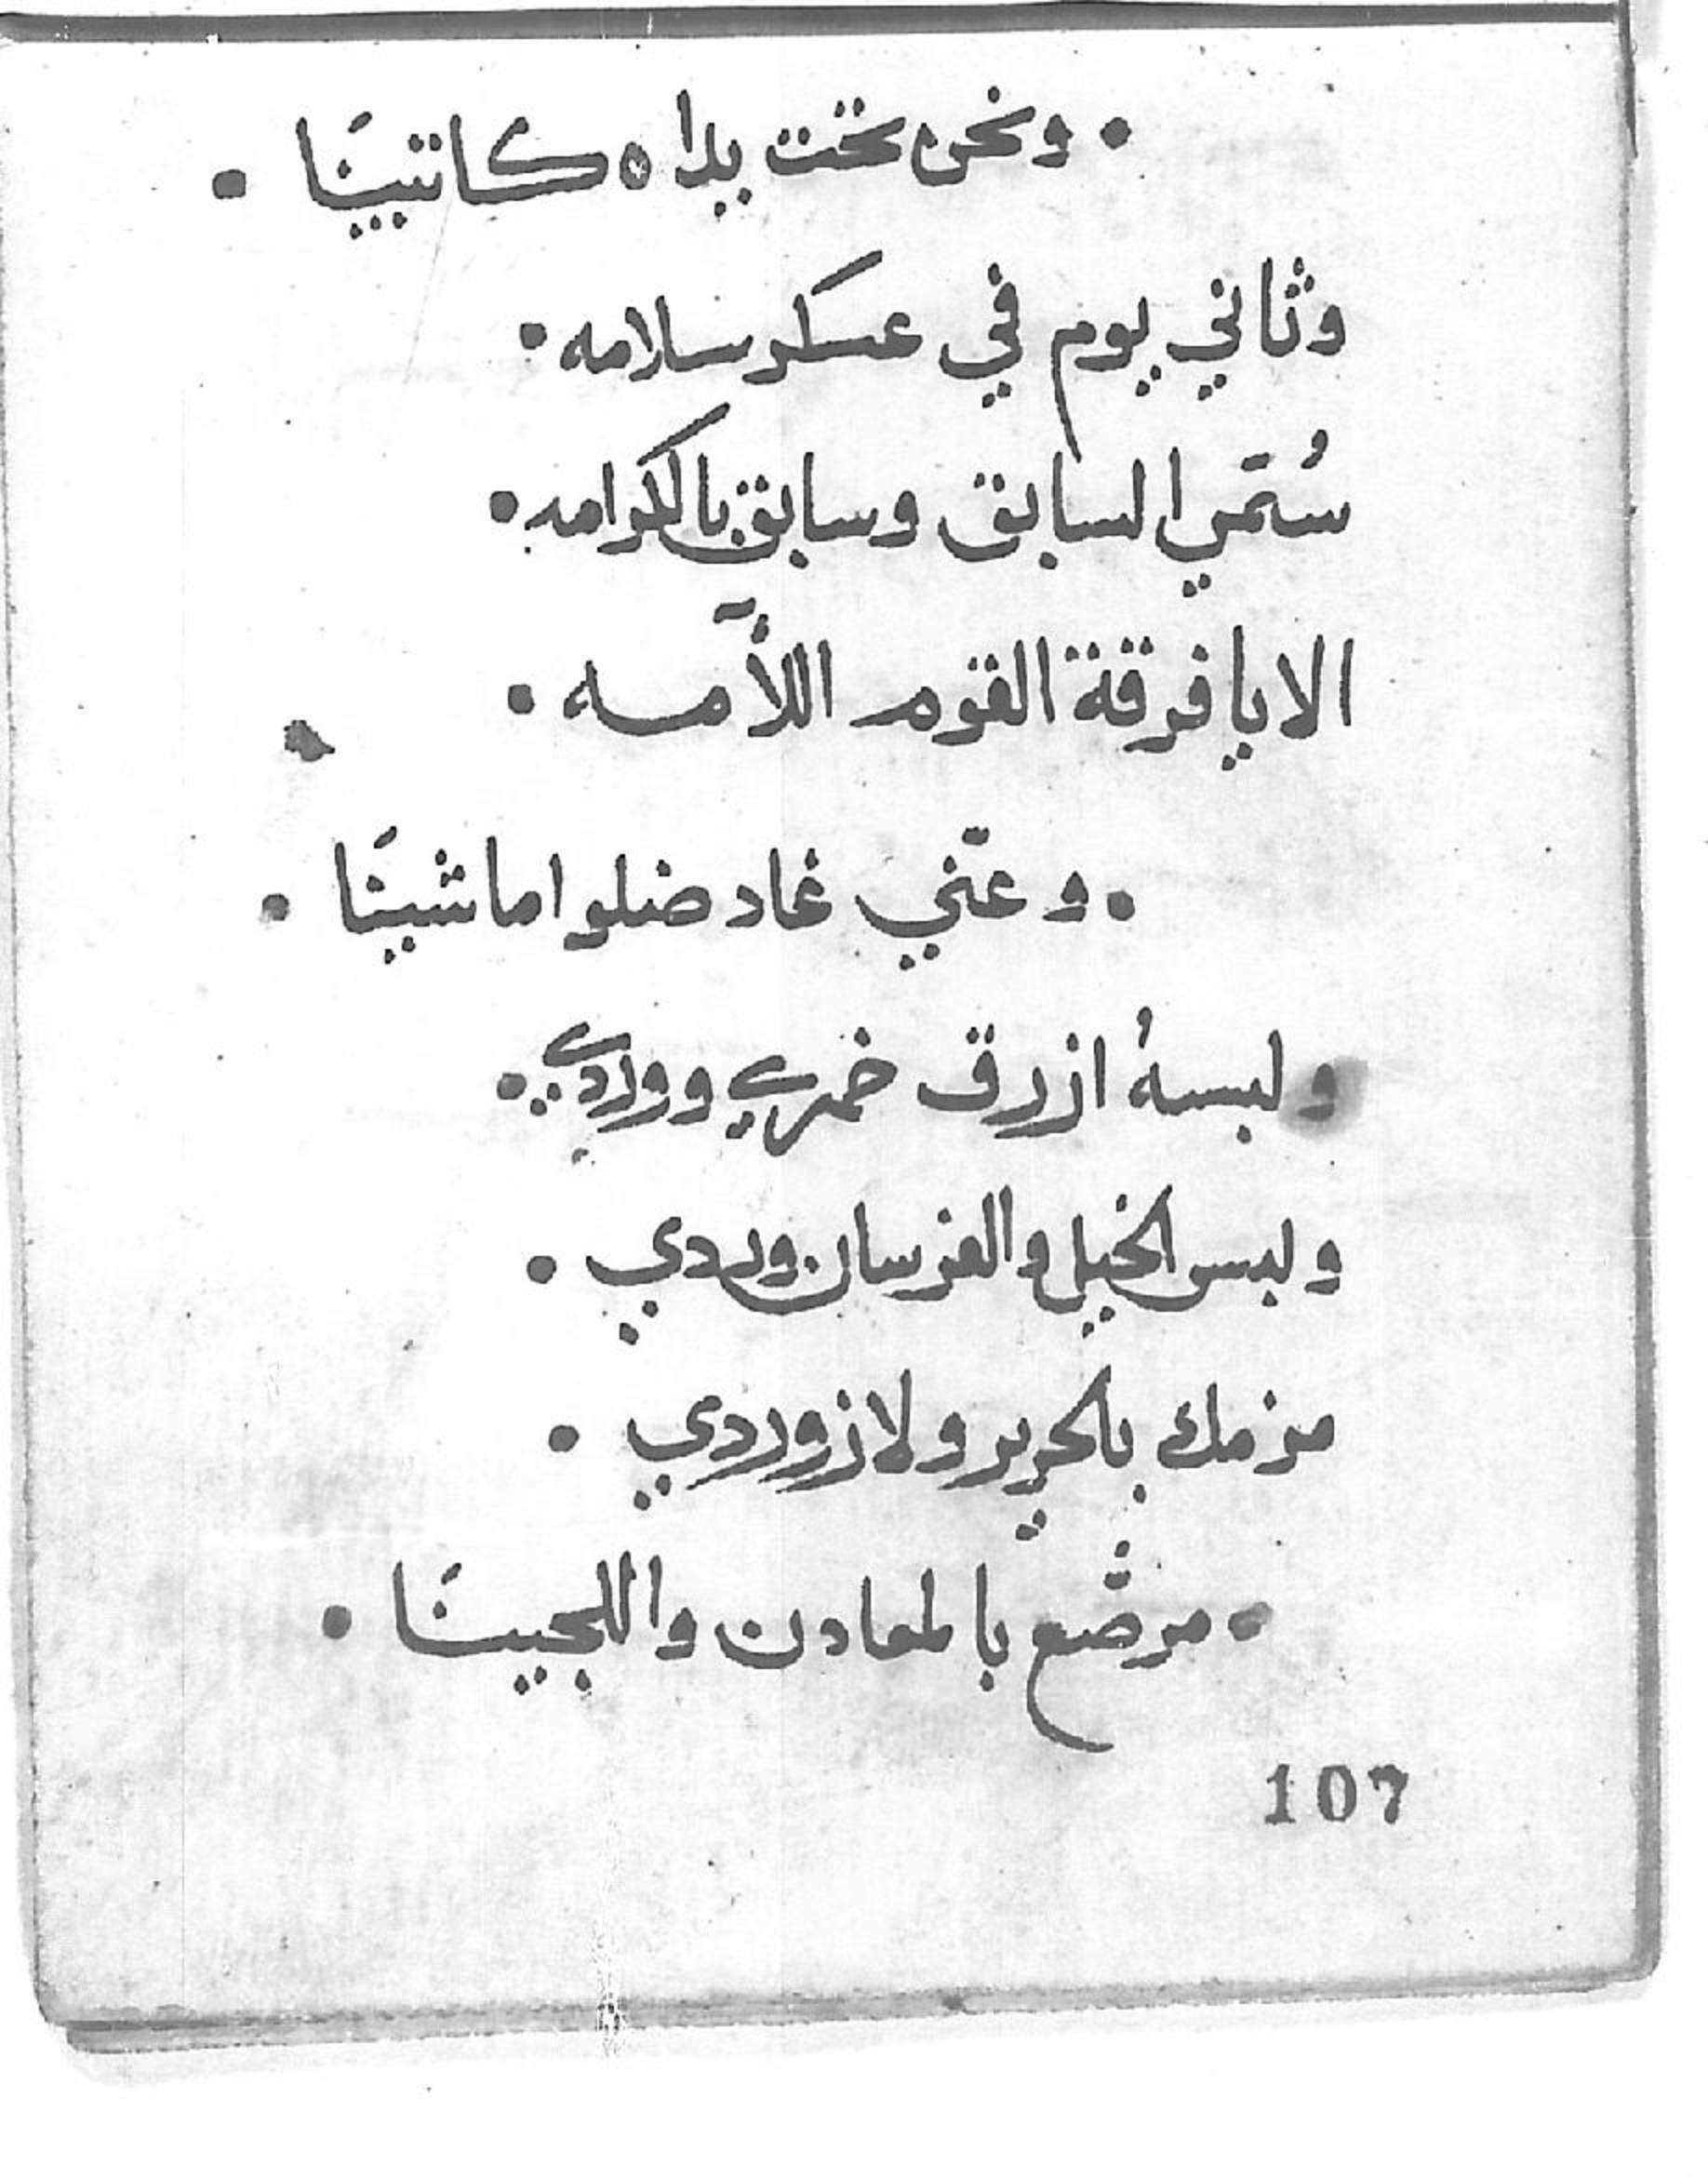 • ونحن تحت يداه كاتبينَا •
وثاني يوم في عسكر سلامه •
سُمّي السابق وسابق بالكرامه •
الا يا فرقة القوم اللآمه •
• وعنّي غاد ضلوا ماشيينَا •
ولبسهُ ازرق خمري ووردي •
ولبس الخيل والفرسان وردي •
مزمك بالحرير ولازوردي •
• مرصّع بالمعادن واللجيينَا •
107